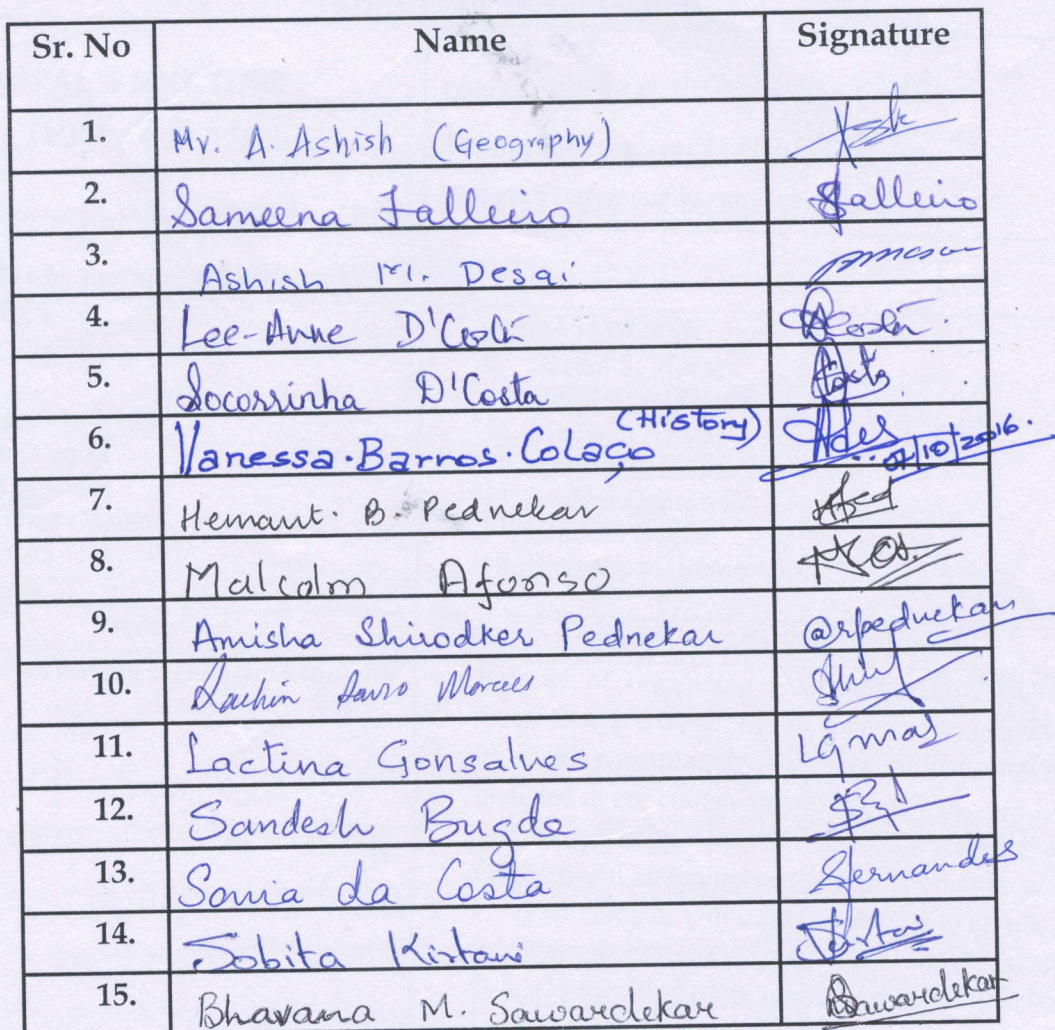 Sr. No Name Signature
1. Mr. A. Ashish (Geography)
2. Sameena Falleiro Falleiro
3. Ashish M. Desai
4. Lee-Anne D'Costa DCosta
5. Socorrinha D'Costa DCosta
6. Vanessa.Barros.Colaço (History) 07/10/2016.
7. Hemant. B. Pednekar
8. Malcolm Afonso
9. Amisha Shirodker Pednekar @rpednekar
10. Savio Moraes
11. Lactina Gonsalves
12. Sandesh Bugde
13. Sonia da Costa Sfernandes
14. Sobita Kirtani
15. Bhavana M. Sawardekar BSawardekar